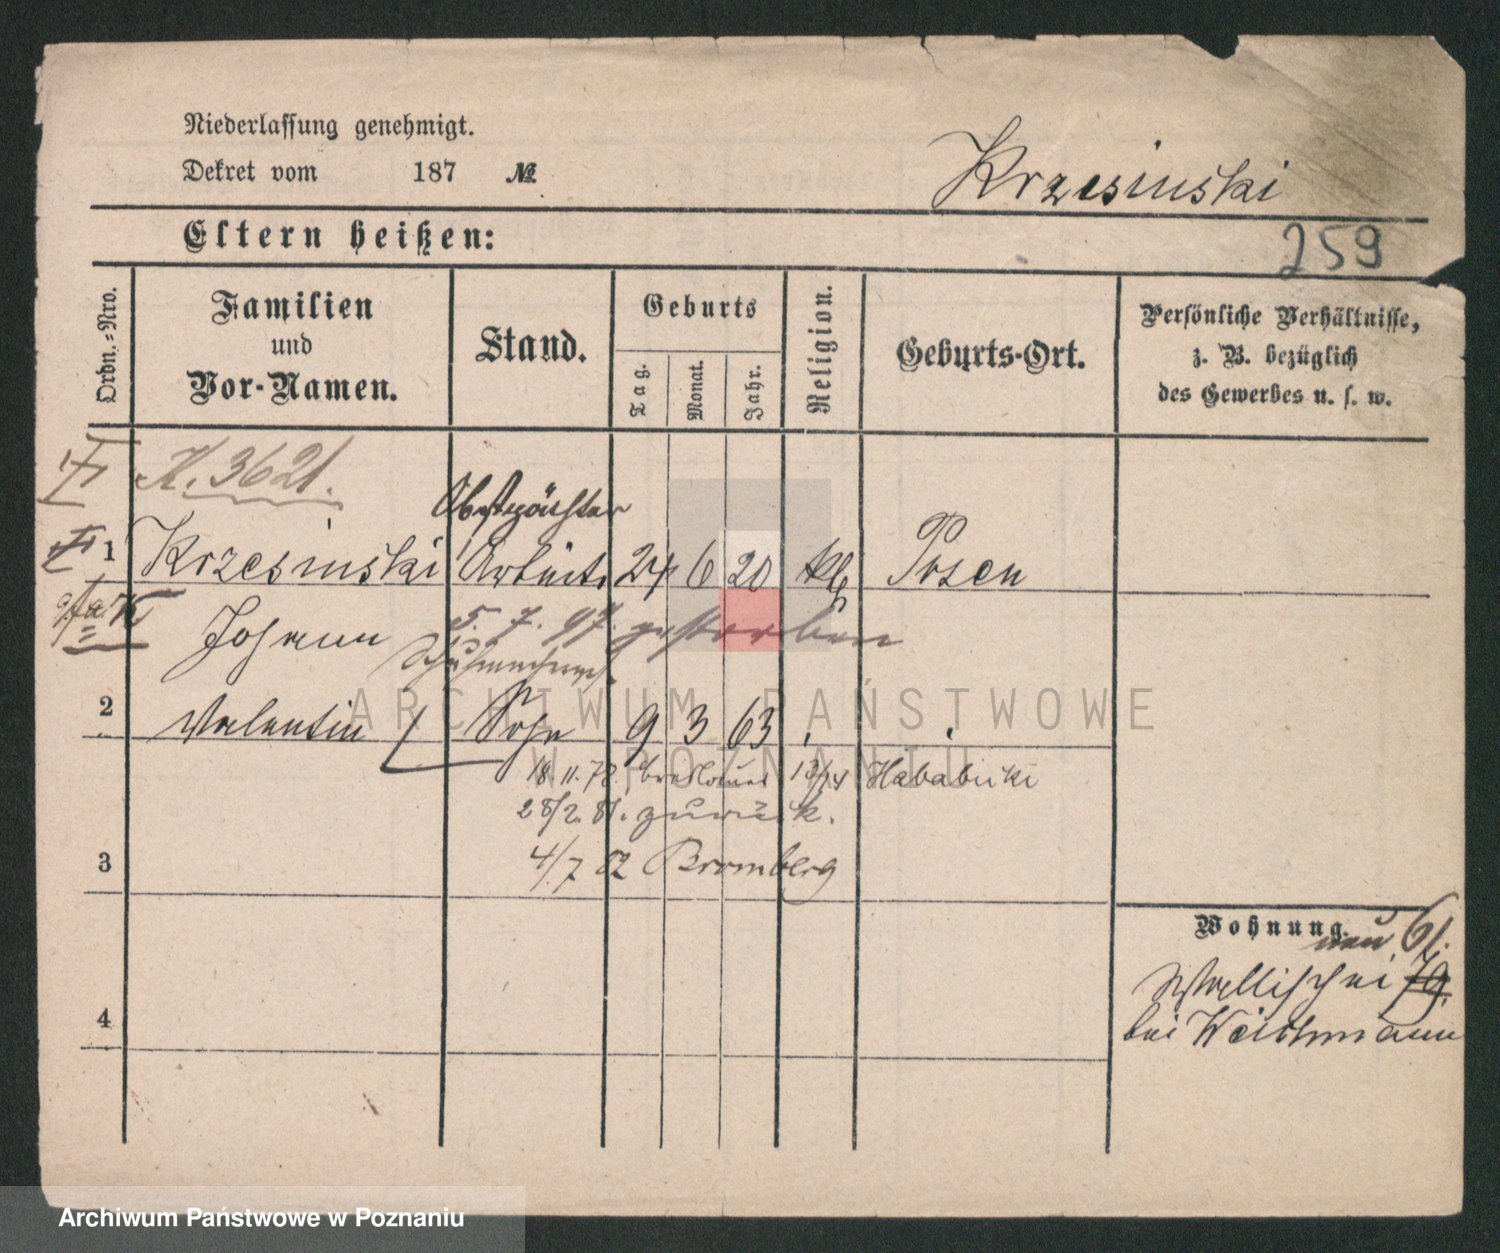 Niederlassung genehmigt.
Dekret vom 187 №
Krzesinski
Eltern heißen:
259
Ordn.-Nro.
Familien
und
Vor-Namen.
Stand.
Geburts
Tag.
Monat.
Jahr.
Religion.
Geburts-Ort.
Persönliche Verhältnisse,
z. B. bezüglich
des Gewerbes u. s. w.
K. 3621.
Obstpächter
1 Krzesinski Arbeits 24 6 20 kth Posen
Johann 5. 7. 97. gestorben
Schuhmacher
2 Valentin Sohn 9 3 63
18. 11. 78.
28/2. 81. zurück.
3 4/7 82 Bromberg
Wohnung.
neu 61.
Wallischei 79.
bei Weichmann
4
ARCHIWUM PAŃSTWOWE
W POZNANIU
Archiwum Państwowe w Poznaniu